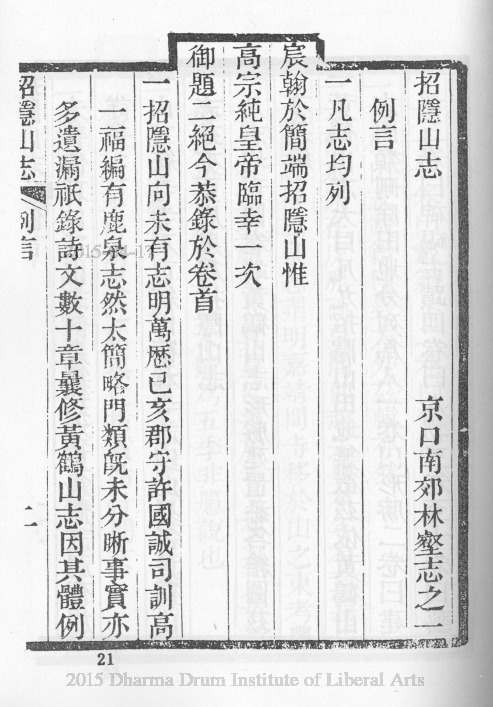 招隱山志 京口南郊林壑志之一
例言
一凡志均列
宸翰於簡端招隱山惟
高宗純皇帝臨幸一次
御題二絕今恭錄於卷首
一招隱山向未有志明萬歷己亥郡守許國誠司訓高
一福編有鹿泉志然太簡略門類旣未分晰事實亦
多遺漏祇錄詩文數十章曩修黃鶴山志因其體例
招隱山志 例言 二
21
2015 Dharma Drum Institute of Liberal Arts